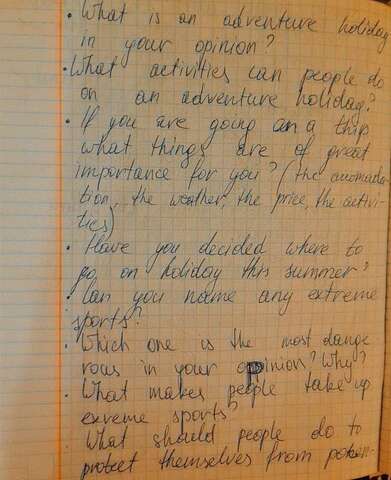 • What is an adventure holiday
in your opinion?
• What activities can people do
on an adventure holiday?
• If you are going on a trip
what things are of great
importance for you? (the
tion, the weather, the price, the activi-
ties)
• Have you decided where to
go on holiday this summer?
• Can you name any extreme
sports?
• Which one is the most dange
rous in your opinion? Why?
• What makes people take up
exreme sports?
What should people do to
protect themselves from poten-